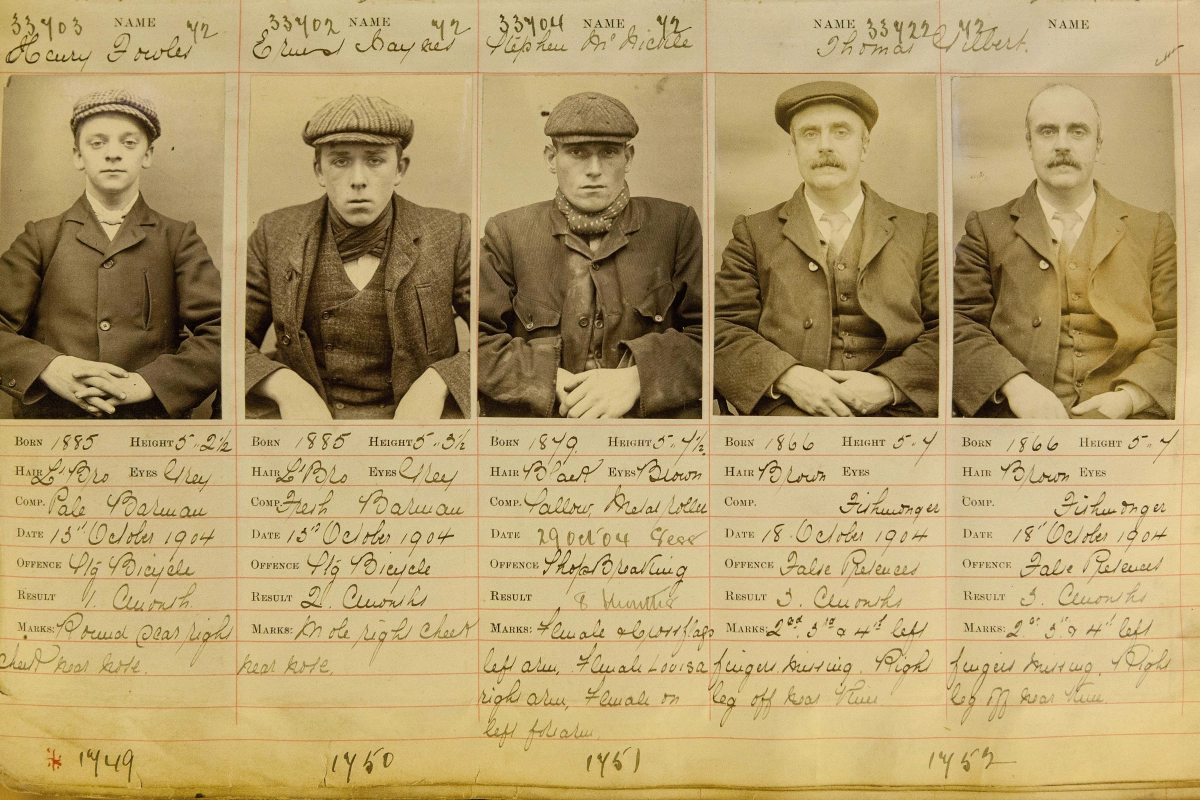 33703 NAME 42
Henry Fowles
33702 NAME 42
Ernest Haynes
33704 NAME 42
Stephen McNickle
NAME 33722 42 NAME
Thomas Gilbert.
BORN 1885 HEIGHT 5.. 2½
HAIR Lt Bro EYES Grey
COMP. Pale Barman
DATE 13th October 1904
OFFENCE Stg Bicycle
RESULT 1. Cmonth
MARKS: Round scar right
cheek near nose.
1749
BORN 1885 HEIGHT 5.. 3½
HAIR Lt Bro EYES Grey
COMP. Fresh Barman
DATE 13th October 1904
OFFENCE Stg Bicycle
RESULT 2. Cmonths
MARKS: Mole right cheek
near nose.
1750
BORN 1879. HEIGHT 5.. 4½
HAIR Black EYES Brown
COMP. Sallow, Metal roller
DATE 29 Oct 04 Sess
OFFENCE Shop Breaking
RESULT 8 months
MARKS: Female & Crossflags
left arm, Female Louisa
right arm, Female on
left forearm.
1751
BORN 1866 HEIGHT 5.. 4
HAIR Brown EYES
COMP. Fishmonger
DATE 18 October 1904
OFFENCE False Pretences
RESULT 3. Cmonths
MARKS: 2nd 3rd & 4th left
fingers missing. Right
leg off near knee
BORN 1866 HEIGHT 5.. 4
HAIR Brown EYES
COMP. Fishmonger
DATE 18th October 1904
OFFENCE False Pretences
RESULT 3. Cmonths
MARKS: 2nd 3rd & 4th left
fingers missing. Right
leg off near knee.
1752